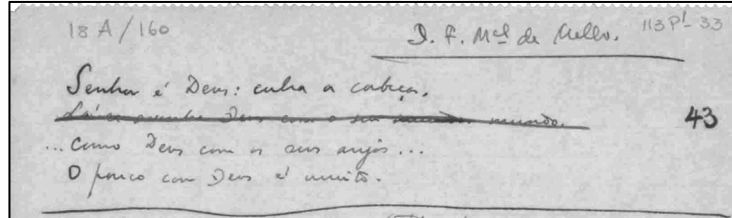 18 A/160
D. F. Mel de Mello.
113 P1-33
Senhor é Deus: cubra a cabeça.
Deus com o seu mundo.
43
... como Deus com os seus anjos...
O pouco com Deus é muito.